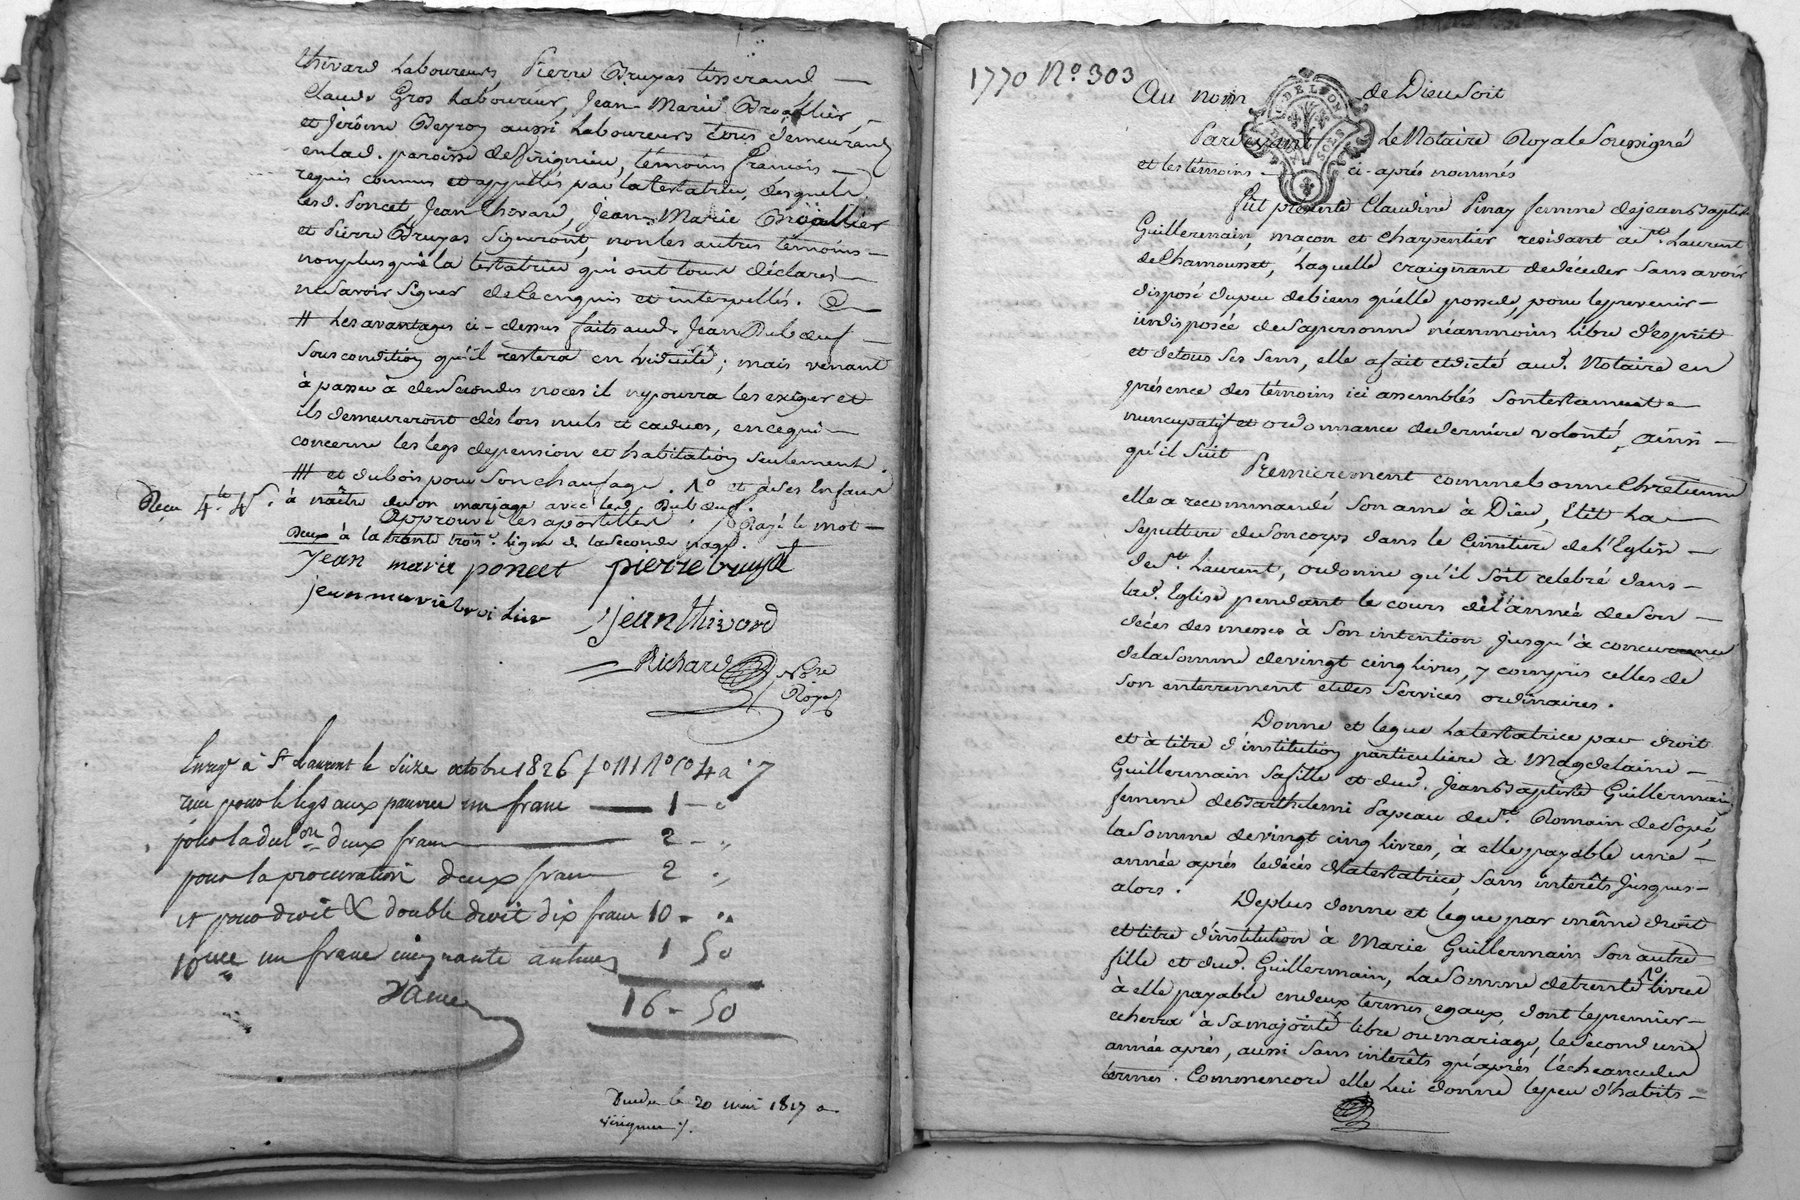 thivard Laboureurs, Pierre Bruyas tisserand
Claude Gros Laboureur, Jean-Marie
et Jérôme Peyroy aussi Laboureurs tous demeurand
en lad. paroisse de Virignieu, témoins français
requis connus et appellés par la testatrice, desquels
lesd. Poncet, Jean thivard, Jean-Marie
et Pierre Bruyas signeront, non les autres témoins
non plus que la testatrice qui ont tous déclaré
ne savoir signer de ce enquis et interpellés.
# Les avantages ci-dessus faits aud. Jean Dubœuf
sous condition qu'il restera en viduité; mais venant
à passer à de secondes noces il ny pourra les exiger et
ils demeureront dès lors nuls et caducs, en ce qui
concerne les legs de pension et habitation seulement.
et du bois pour son chaufage. et à ses Enfans
à naître de son mariage avec led. Dubœuf.
Reçu 4.lt 4s.
Approuvé les apostilles. Rayé le mot
Deux à la trante trois.e ligne de la seconde page.
jean marie poncet pierre bruyas
jean marie
jean thivard
Richard Nore
Royal
Enregé à St Laurent le seize octobre 1826 fo 111 Ro Co 4 a 7
reçu pour le legs aux pauvres un franc 1 - "
pour la dél.on deux francs 2 - "
pour la procuration deux francs 2 "
et pour droit & double droit dix francs 10 - "
10eme un franc cinquante centimes 1 50
16 - 50
le 20 mai 1817 a
virignieu
1770 No. 303
Au nom de Dieu soit
G. DE LYON
Pardevant Le Notaire Royal Soussigné
et les témoins ci-après nommés
fut présente Claudine Pinay femme de jean Baptiste
Guillermain, maçon et charpentier residant à St. Laurent
de Chamousset, Laquelle craignant de décéder sans avoir
disposé du peu de biens qu'elle possede, pour le prevenir
indisposée de sa personne néanmoins libre d'esprit
et de tous ses sens, elle a fait et dicté aud. Notaire en
présence des témoins ici assemblés son testament
nuncupatif et ordonnance de derniere volonté, ainsi
qu'il suit
Premierement comme bonne Chretienne
elle a recommandé son ame à Dieu, Elit La
sepulture de son corps dans le Cimitiere de l'Eglise
de St. Laurent, ordonne qu'il soit celebré dans
lad. Eglise pendant le cours de l'année de son
décés des messes à son intention jusqu'à concurrence
de la somme de vingt cinq livres, y compris celles de
son enterrement et des services ordinaires.
Donne et legue La testatrice par droit
et à titre d'institution particuliere à Magdelaine
Guillermain sa fille et dud. Jean Baptiste Guillermain
femme de Barthelemi Papeau de St. Romain de Popé,
la somme de vingt cinq livres, à elle payable une
année après le décés de la testatrice, sans intérêts jusques
alors.
De plus donne et legue par même droit
et titre d'institution à Marie Guillermain son autre
fille et dud. Guillermain, La somme de trente livres
à elle payable en deux termes egaux, dont le premier
echerra à sa majorité libre ou mariage, le second une
année après, aussi sans intérêts qu'après l'échéance des
termes. Comme encore elle Lui donne le peu d'habits